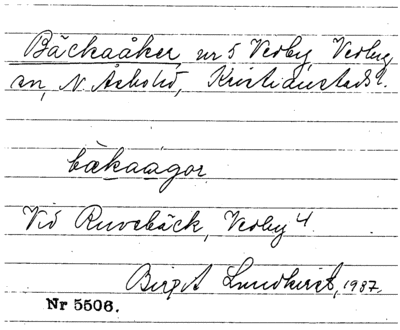 Bäckaåker nr 5 Verby, Verby
sn, N Åsbo hd, Kristianstads l.
bækaágor
Vid Ruvebäck, Verby 4
Birgit Lundkvist, 1987.
Nr 5506.